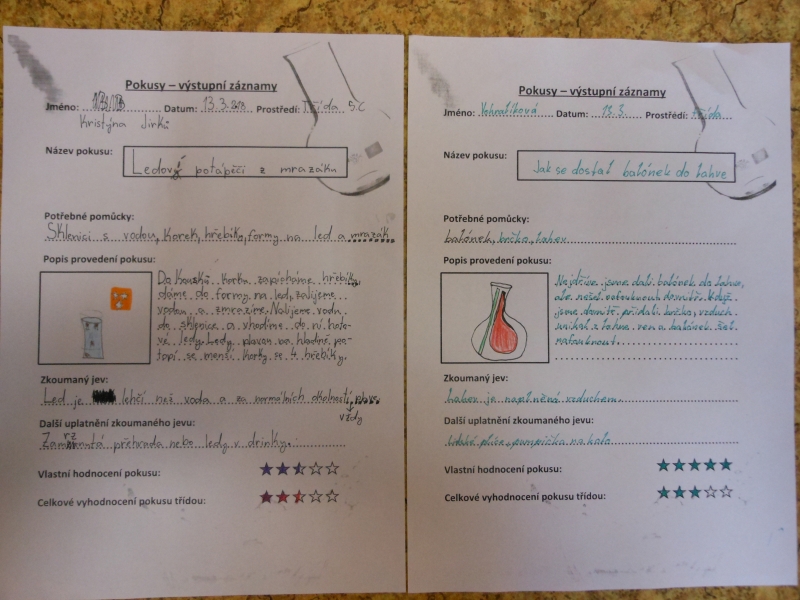 Pokusy – výstupní záznamy
Jméno: Datum: 13.3. Prostředí: Třída 5.C
Kristýna Jirků
Název pokusu: Ledový potápěči z mrazáku
Potřebné pomůcky:
Sklenici s vodou, korek, hřebíky, formy na led a mrazák
Popis provedení pokusu:
Do kousků korku zapícháme hřebíky,
dáme do formy na led, zalijeme
vodou a zmrazíme. Nalijeme vodu
do sklenice a vhodíme do ní hoto-
vé ledy. Ledy plavou na hladině, po-
topí se menší korky se 4 hřebíky.
Zkoumaný jev:
Led je lehčí než voda a za normálních okolností plave.
vždy
Další uplatnění zkoumaného jevu:
Zamrznutá přehrada nebo ledy v drinky.
Vlastní hodnocení pokusu:
Celkové vyhodnocení pokusu třídou:
Pokusy – výstupní záznamy
Jméno: Datum: 13.3. Prostředí: třída
Název pokusu: Jak se dostal balónek do lahve
Potřebné pomůcky:
balónek, brčko, lahev
Popis provedení pokusu:
Nejdříve jsme dali balónek do lahve,
ale nešel nafouknout dovnitř. Když
jsme dovnitř přidali brčko, vzduch
unikal z lahve ven a balónek šel
nafouknout.
Zkoumaný jev:
Lahev je naplněná vzduchem.
Další uplatnění zkoumaného jevu:
lidské plíce, pumpička na kolo
Vlastní hodnocení pokusu:
Celkové vyhodnocení pokusu třídou: